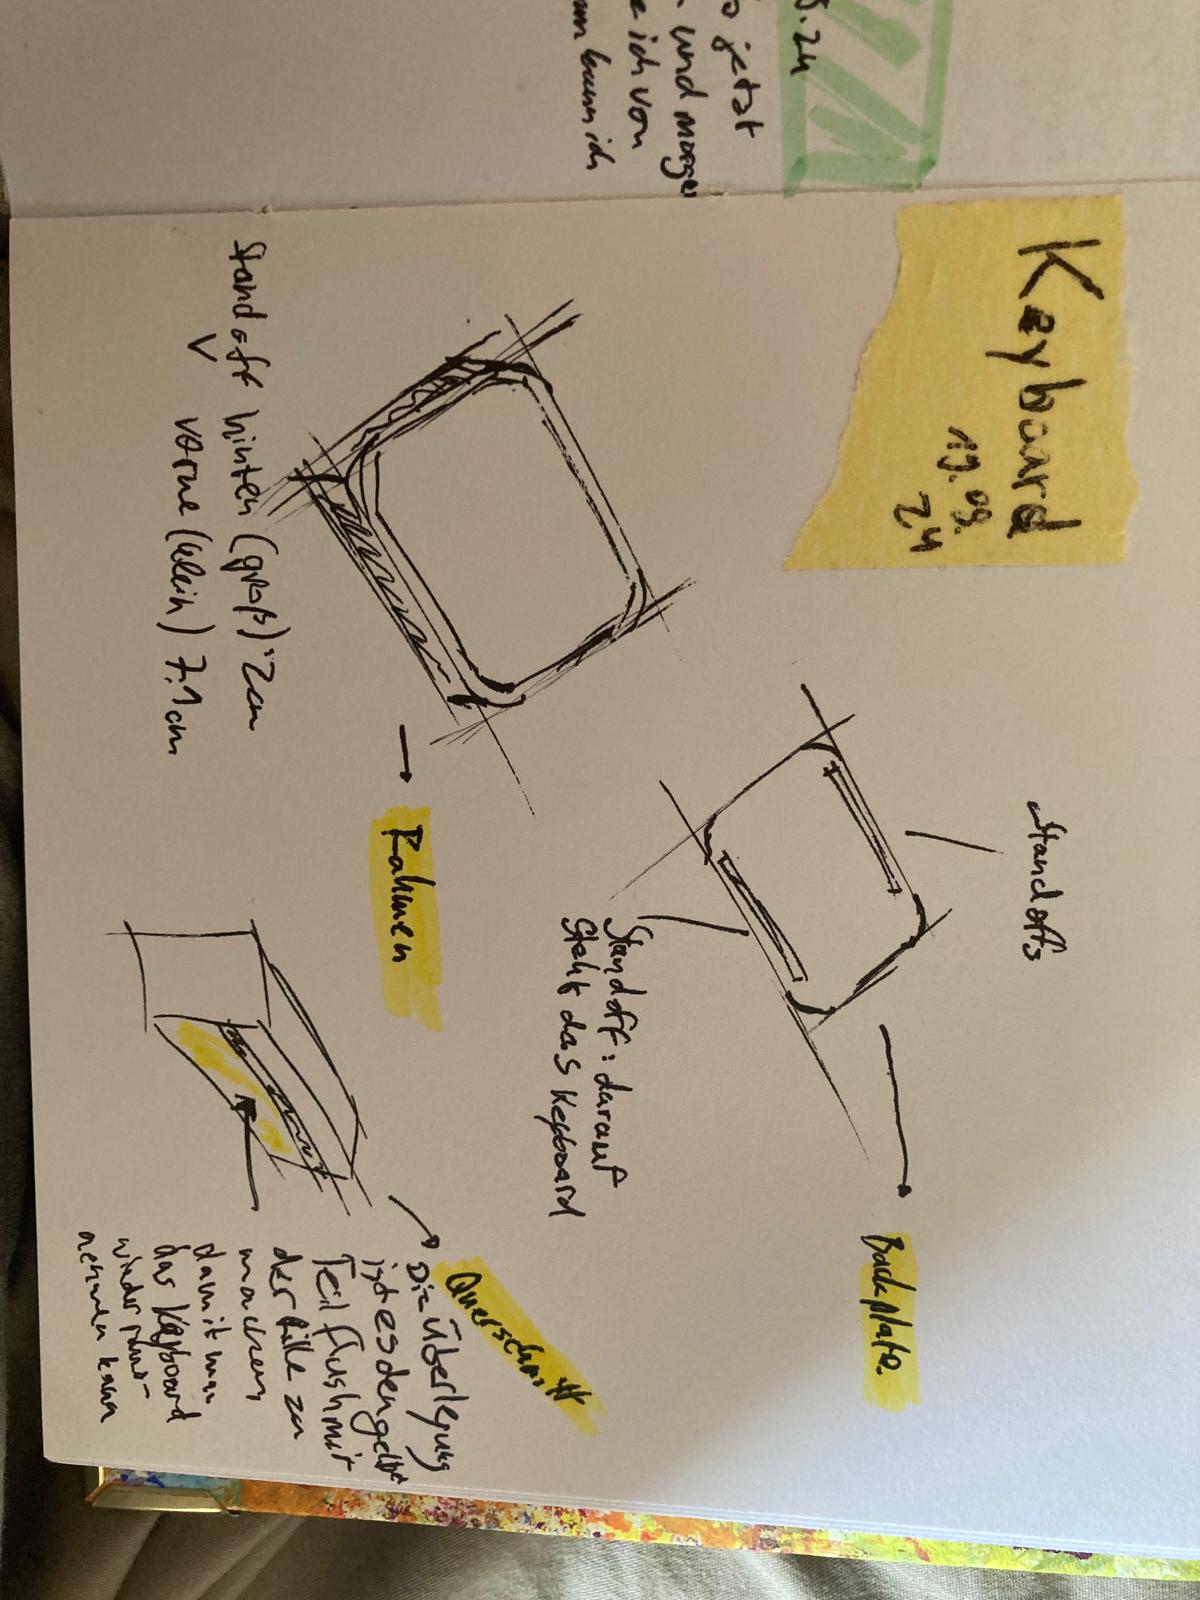 5.24
jetzt
und morgen
e ich von
kann ich
Keyboard
19.09.
24
Standoffs
Backplate
Standoff: darauf
steht das Keyboard
Rahmen
Standoff hinten (groß) 2cm
V vorne (klein) 7.1cm
Querschnitt
Die Überlegung
ist es den gelben
Teil flush mit
der Rille zu
machen
damit man
das Keyboard
wieder
nehmen kann